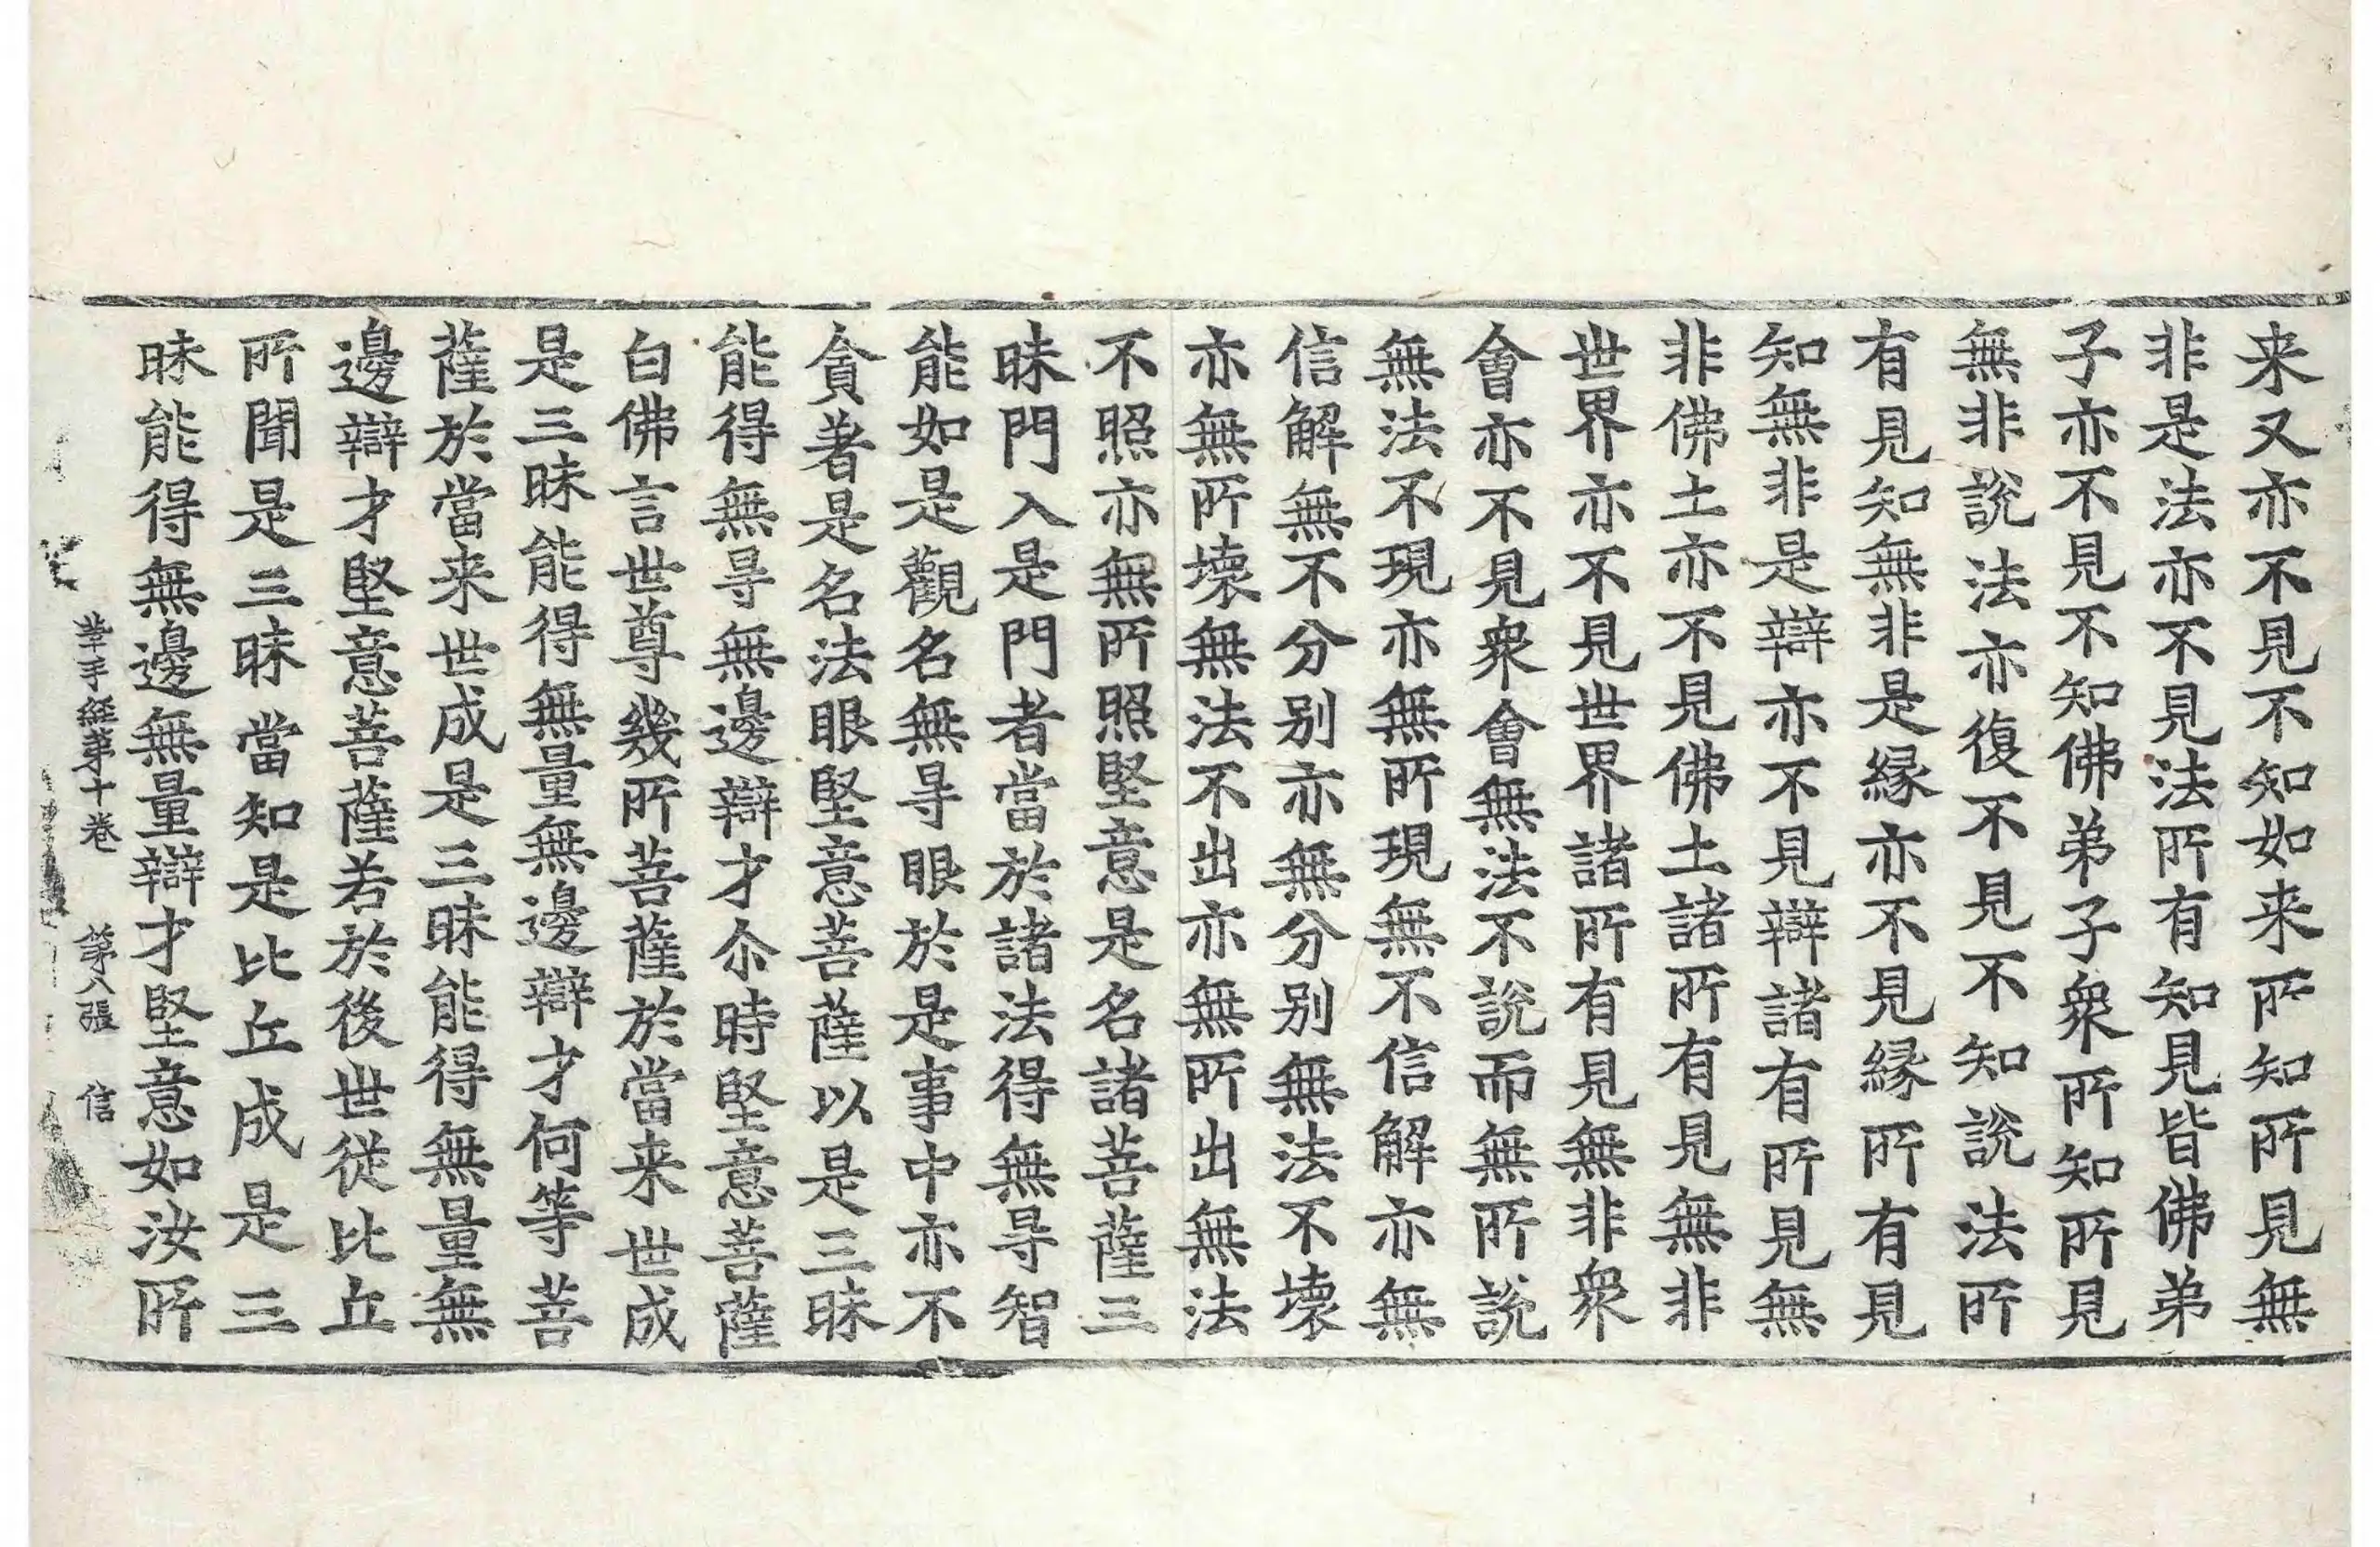 来又亦不見不知如来所知所見無
非是法亦不見法所有知見皆佛弟
子亦不見不知佛弟子衆所知所見
無非說法亦復不見不知說法所
有見知無非是縁亦不見縁所有見
知無非是辯亦不見辯諸有所見無
非佛土亦不見佛土諸所有見無非
世界亦不見世界諸所有見無非衆
會亦不見衆會無法不說而無所說
無法不現亦無所現無不信解亦無
信解無不分別亦無分別無法不壞
亦無所壞無法不出亦無所出無法
不照亦無所照堅意是名諸菩薩三
昧門入是門者當於諸法得無㝵智
能如是觀名無㝵眼於是事中亦不
貪著是名法眼堅意菩薩以是三昧
能得無㝵無邊辯才尒時堅意菩薩
白佛言世尊幾所菩薩於當来世成
是三昧能得無量無邊辯才何等菩
薩於當来世成是三昧能得無量無
邊辯才堅意菩薩若於後世從比丘
所聞是三昧當知是比丘成是三
昧能得無邊無量辯才堅意如汝所
華手經第十卷 第八張 信